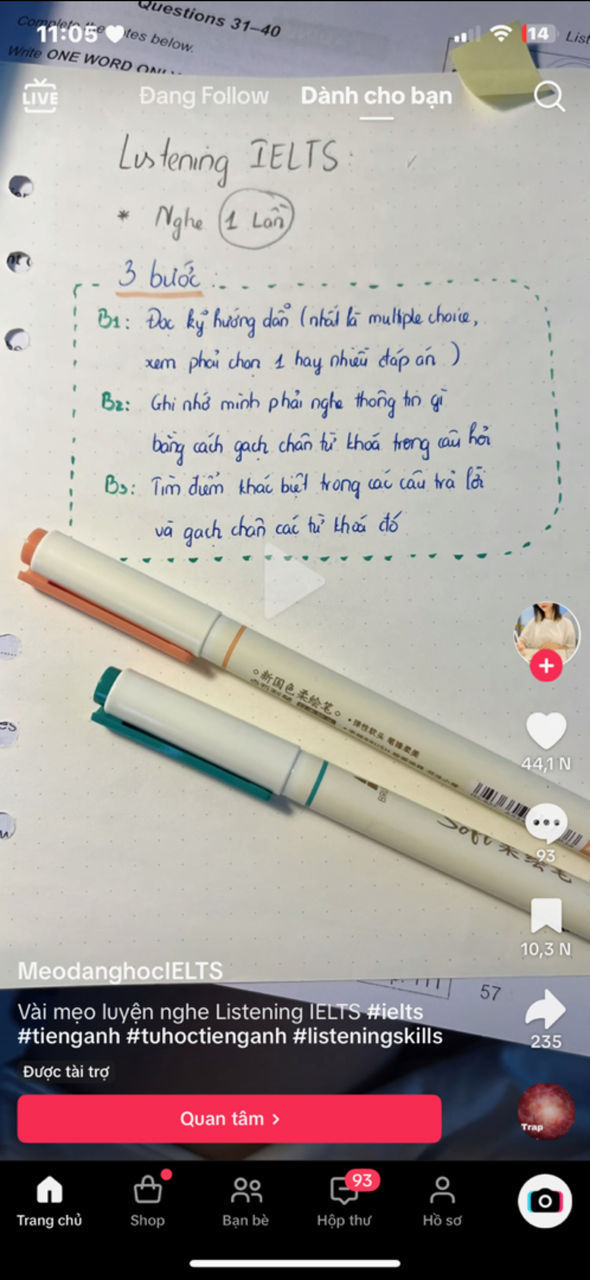 Questions 31–40
Complete the notes below.
Write ONE WORD ONLY
11:05
14
List
LIVE
Đang Follow
Dành cho bạn
Listening IELTS:
* Nghe 1 Lần
3 bước:
B1: Đọc kỹ hướng dẫn (nhất là multiple choice,
xem phải chọn 1 hay nhiều đáp án)
B2: Ghi nhớ mình phải nghe thông tin gì
bằng cách gạch chân từ khoá trong câu hỏi
B3: Tìm điểm khác biệt trong các câu trả lời
và gạch chân các từ khoá đó
新国色柔绘笔。
·弹性软头 笔锋柔美
Soft 柔绘笔
44,1 N
93
10,3 N
57
235
MeodanghocIELTS
Vài mẹo luyện nghe Listening IELTS #ielts
#tienganh #tuhoctienganh #listeningskills
Được tài trợ
Quan tâm >
Trap
93
Trang chủ
Shop
Bạn bè
Hộp thư
Hồ sơ